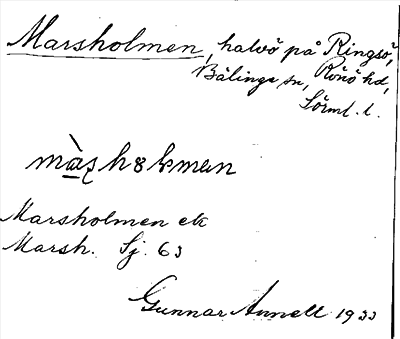 Marsholmen, halvö på Ringsö,
Bälinge sn, Rönö hd,
Sörml. l.
màʂhɞlmɐn
Marsholmen ek
Marsh. Sj. 63
Gunnar Annell 1933